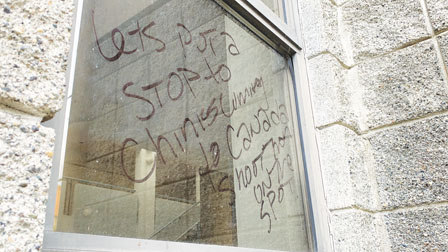 Lets put a
STOP to
Chines Coming
to Canada
shoot
on the
spot